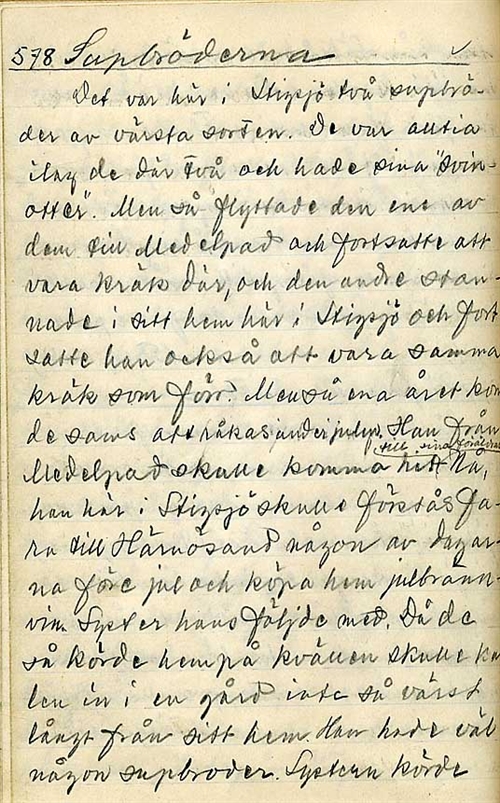 578 Supbröderna
Det var här i Stigsjö två supbrö-
der av värsta sorten. De var alltid
ilag de där två och hade sina "svin-
otter". Men så flyttade den ene av
dem till Medelpad och fortsatte att
vara kräk där, och den andre stan-
nade i sitt hem här i Stigsjö och fort
satte han också att vara samma
kräk som förr. Men så ena året kom
de sams att råkas under julen. Han från
till sina föräldrar
Medelpad skulle komma hit. Nå,
han här i Stigsjö skulle förstås fa-
ra till Härnösand någon av dagar-
na före jul och köpa hem julbränn-
vin. Syster hans följde med. Då de
så körde hem på kvällen skulle ka
len in i en gård inte så värst
långt från sitt hem. Han hade väl
någon supbroder. Systern körde